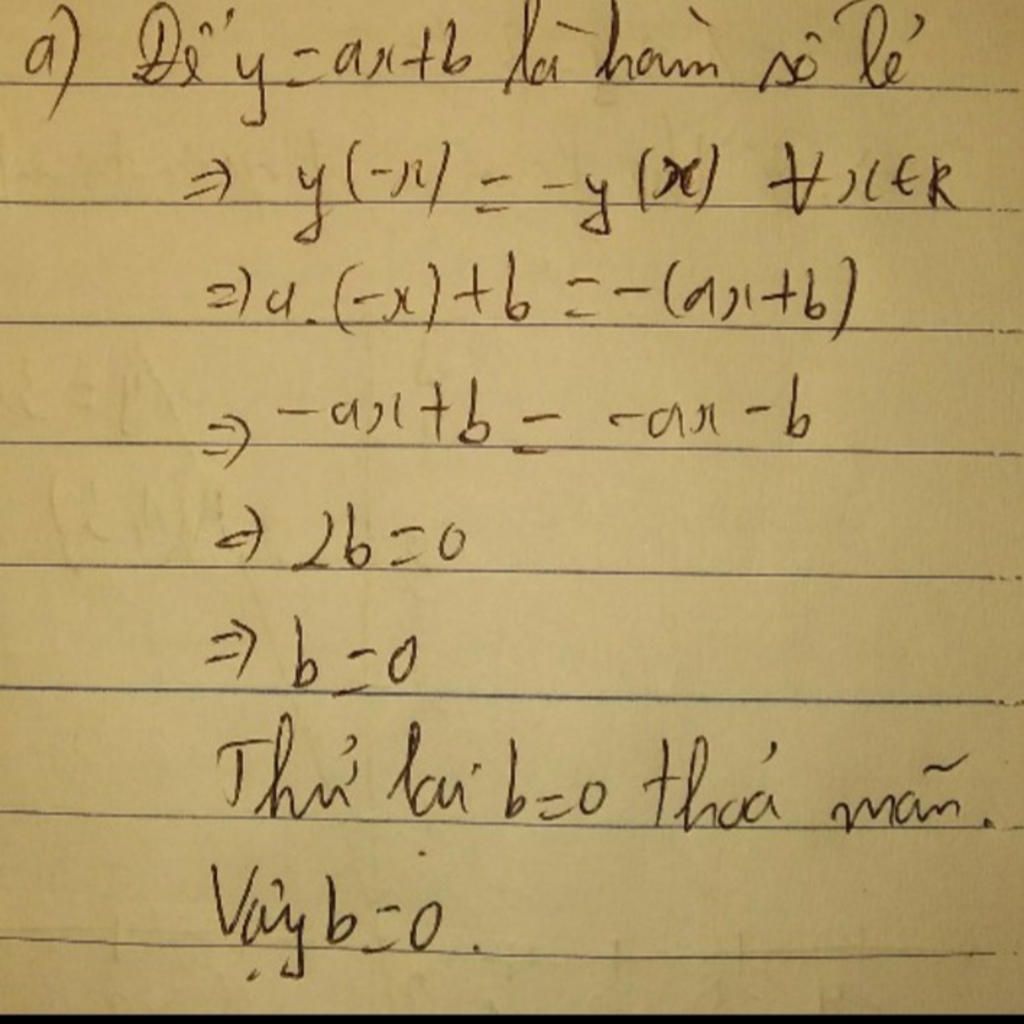 a) Để y = ax+b là hàm số lẻ
⇒ y(-x) = -y(x) ∀x∈R
⇒ a.(-x)+b = -(ax+b)
⇒ -ax+b = -ax-b
⇒ 2b=0
⇒ b=0
Thử lại b=0 thoả mãn.
Vậy b=0.